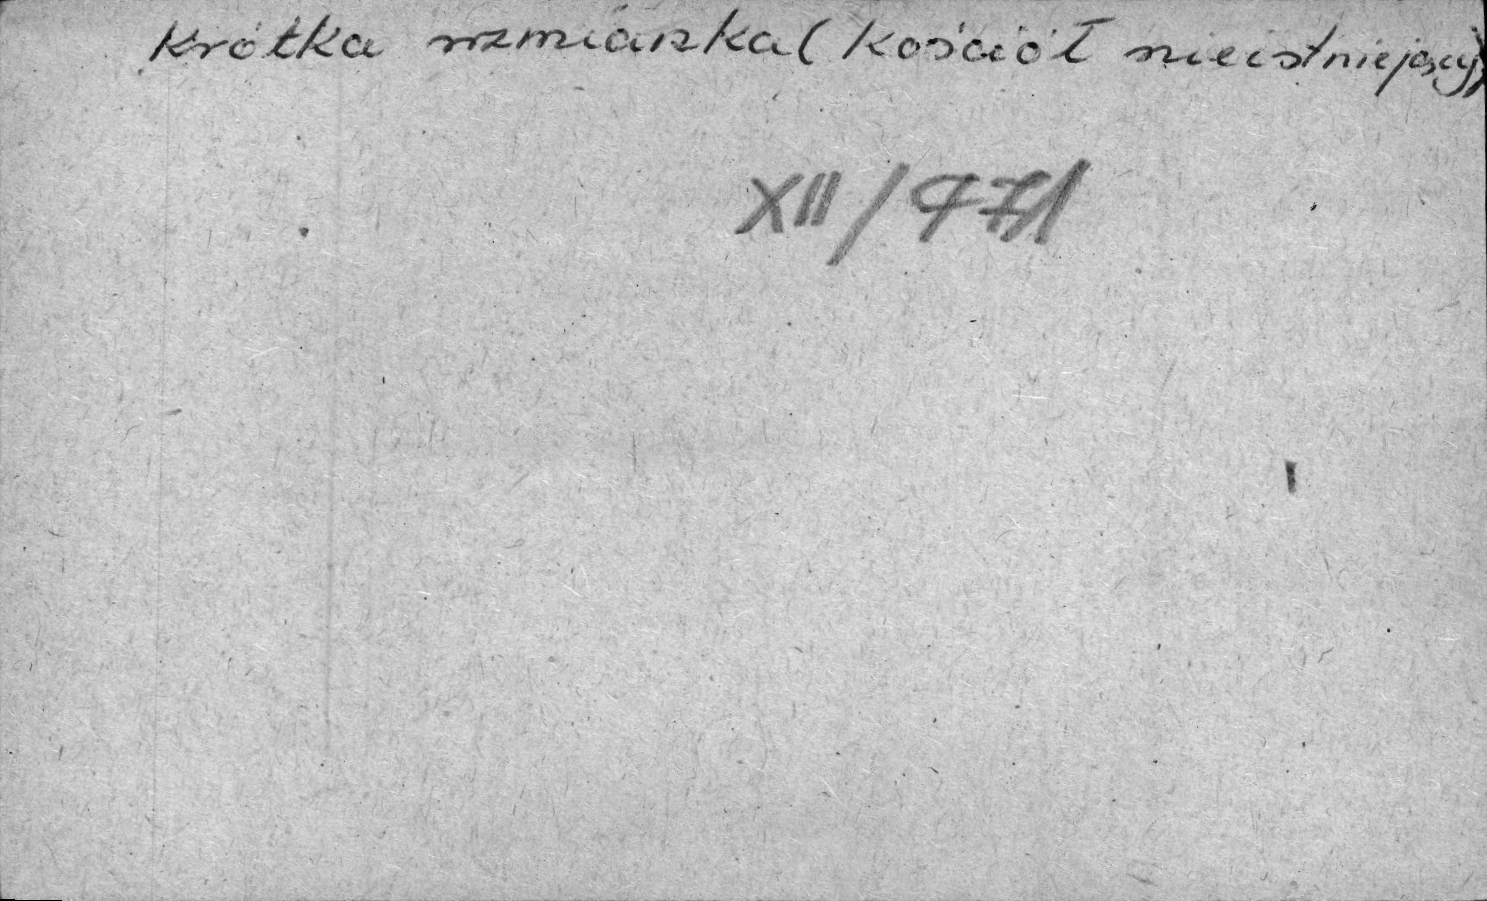 Krótka wzmianka (Kościół nieistniejący)
XII/971